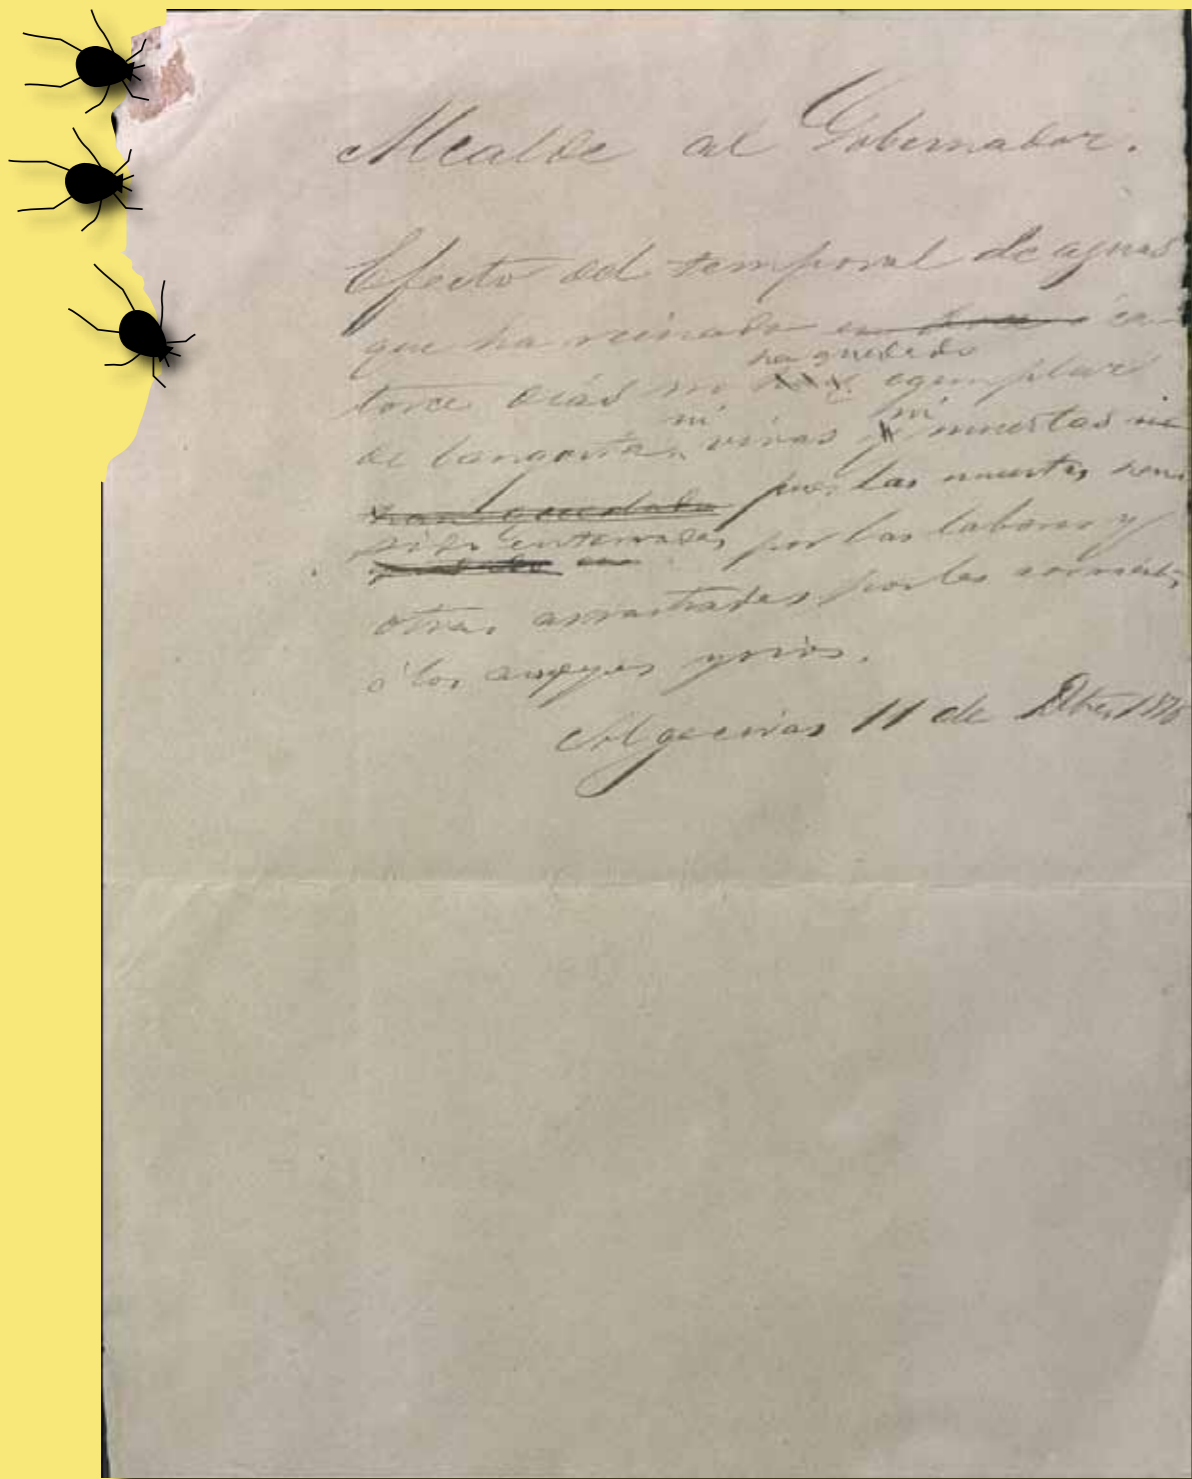 Alcalde al Gobernador.
Efecto del temporal de aguas
que ha reinado en ca-
torce dias ni ha quedado egemplares
de langosta ni vivas ni muertas
pues las muertas han
sido enterradas por las labores y
otras arrastradas por las corrientes
á los arroyos y rios.
Algeciras 11 de Dbre 1876